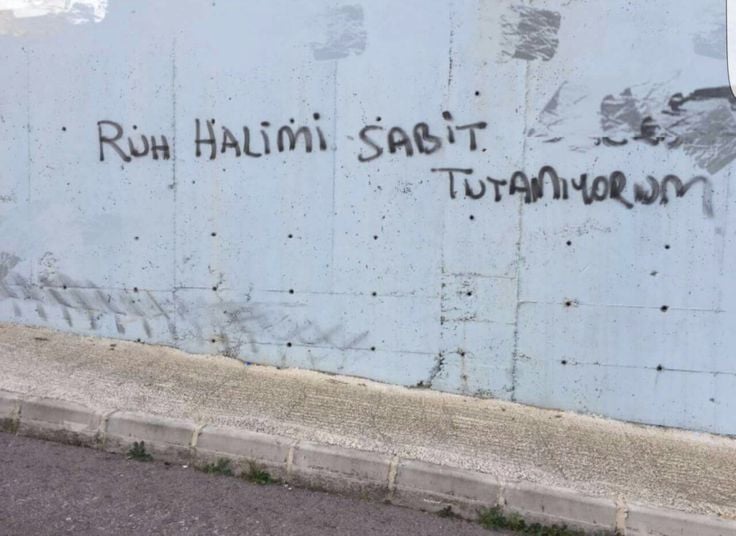 RUH HALİMİ SABİT
TUTAMIYORUM